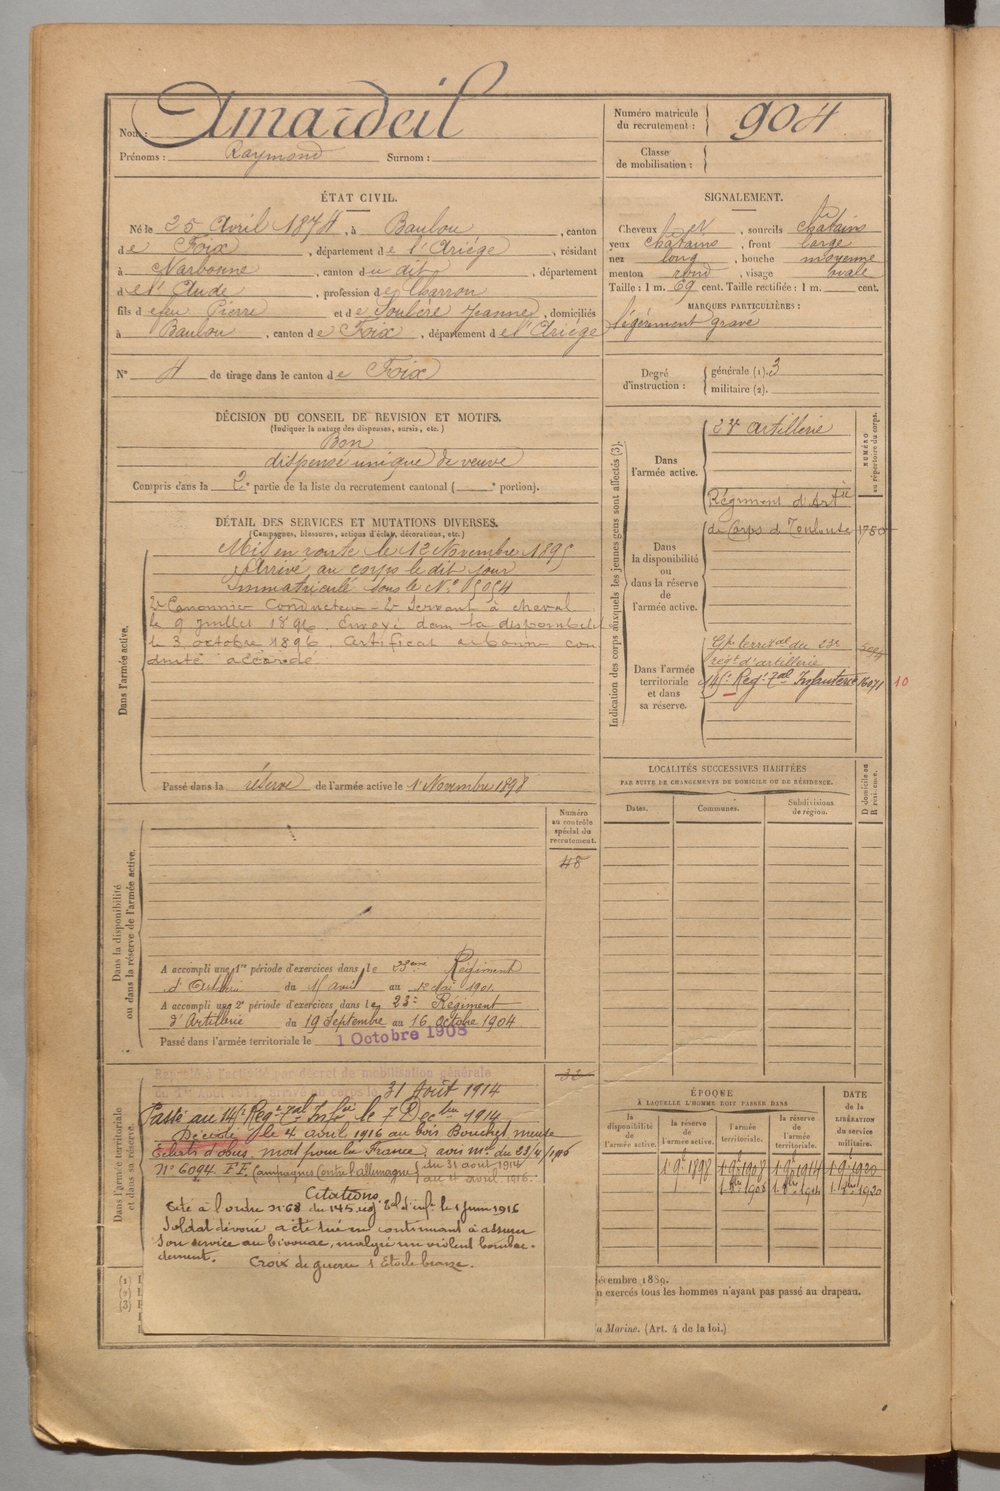 Nom : Amardeil
Prénoms : Raymond Surnom :
Numéro matricule du recrutement : 904
Classe de mobilisation :
ÉTAT CIVIL.
Né le 25 Avril 1874, à Baulou, canton
de Foix, département de l'Ariége, résidant
à Narbonne, canton du dit, département
de l'Aude, profession de Charron
fils de feu Pierre et de Soubéré Jeanne, domiciliés
à Baulou, canton de Foix, département de l'Ariége
N° 4 de tirage dans le canton de Foix
SIGNALEMENT.
Cheveux, sourcils châtains
yeux châtains, front large
nez long, bouche moyenne
menton rond, visage ovale
Taille : 1 m. 69 cent. Taille rectifiée : 1 m. cent.
MARQUES PARTICULIÈRES :
légèrment gravé
Degré d'instruction : générale (1). 3
militaire (2).
DÉCISION DU CONSEIL DE REVISION ET MOTIFS.
(Indiquer la nature des dispenses, sursis, etc.)
Bon
dispensé unique de veuve
Compris dans la 2e partie de la liste du recrutement cantonal ( e portion).
DÉTAIL DES SERVICES ET MUTATIONS DIVERSES.
(Campagnes, blessures, actions d'éclat, décorations, etc.)
Dans l'armée active.
Mis en route le 12 Novembre 1895
Arrivé au corps le dit jour
Immatriculé sous le N°
2e Canonnier Conducteur - 2e Servant à cheval
le 9 juillet 1896. Envoyé dans la disponibilité
le 3 octobre 1896. Certificat de bonne con
duite accordé
Passé dans la réserve de l'armée active le 1er Novembre 1898
Indication des corps auxquels les jeunes gens sont affectés (3).
NUMÉRO au répertoire du corps.
Dans l'armée active.
23e artillerie
Dans la disponibilité ou dans la réserve de l'armée active.
Régiment d'Artie
de Corps d Toulouse 1750
Dans l'armée territoriale et dans sa réserve.
Gpe territal du 23e
regt d'artillerie
145e Regt Tal Infanterie 16071 10
LOCALITÉS SUCCESSIVES HABITÉES
PAR SUITE DE CHANGEMENTS DE DOMICILE OU DE RÉSIDENCE.
Dates. Communes. Subdivisions de région. D domicile ou R résidence.
Dans la disponibilité ou dans la réserve de l'armée active.
Numéro au contrôle spécial du recrutement.
48
A accompli une 1re période d'exercices dans le 23ème Régiment
d'Artillerie du 15 avril au 12 Mai 1901.
A accompli une 2e période d'exercices dans le 23e Régiment
d'Artillerie du 19 Septembre au 16 octobre 1904
Passé dans l'armée territoriale le 1 Octobre 1908
Dans l'armée territoriale et dans sa réserve.
Rappelé à l'activité par décret de mobilisation générale
du 1er Août 1914. Arrivé au corps le 31 Août 1914
Passé au 145e Regt Tal Infie le 7 Décbre 1914
Décédé le 4 avril 1916 au bois Bouchet meuse
Eclats d'obus, mort pour la France, avis ml du 23/4/1916
N° 6094. F.E. Campagnes Contre l'allemagne du 31 août 1914
au 4 avril 1916.
Citations
Cité à l'ordre n° 68 du 145 reg. Tal d'infie le 1 juin 1916
Soldat dévoué, a été tué en continuant à assurer
son service au bivouac, malgré un violent bombar-
dement.
Croix de guerre 1 Etoile bronze.
ÉPOQUE
À LAQUELLE L'HOMME DOIT PASSER DANS
la disponibilité de l'armée active. la réserve de l'armée active. l'armée territoriale. la réserve de l'armée territoriale.
DATE de la LIBÉRATION du service militaire.
1 9bre 1898 1 9bre 1908 1 9bre 1914 1 9bre 1920
1 8bre 1908 1 8bre 1914 1 8bre 1920
(1)
(2)
(3)
décembre 1889.
n exercés tous les hommes n'ayant pas passé au drapeau.
a Marine. (Art. 4 de la loi.)